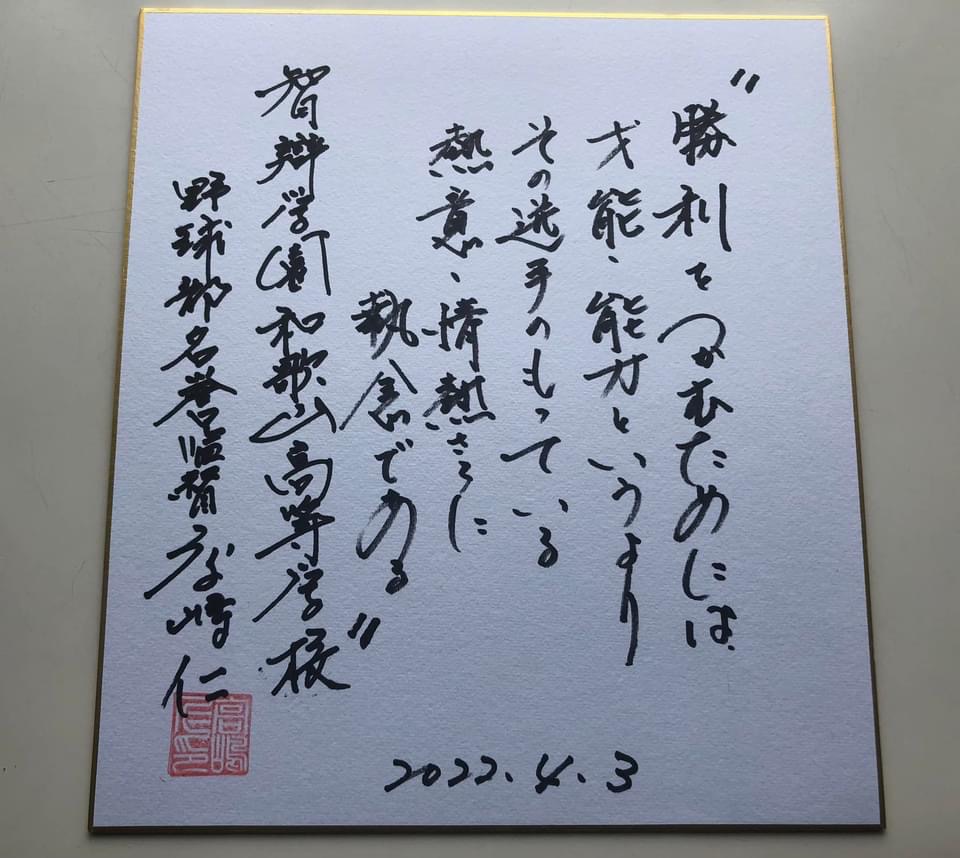 〝勝利をつかむためには、
才能、能力というより
その選手のもっている
熱意、情熱さらに
執念である〟
智辯学園和歌山高等学校
野球部名誉監督 高嶋 仁
高嶋仁印
2022.4.3